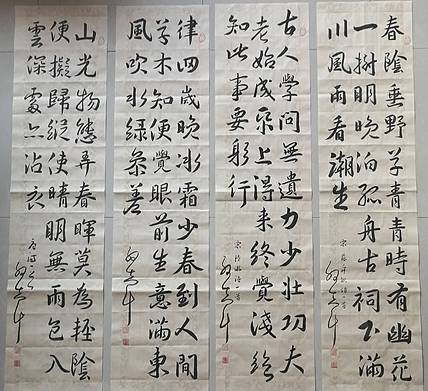 春陰垂野草青青時有幽花
一樹明晚泊孤舟古祠下滿
川風雨看潮生
古人學問無遺力少壯功夫
老始成紙上得來終覺淺絕
知此事要躬行
律回歲晚冰霜少春到人間
草木知便覺眼前生意滿東
風吹水綠參差
山光物態弄春暉莫為輕陰
便擬歸縱使晴明無雨色入
雲深處亦沾衣